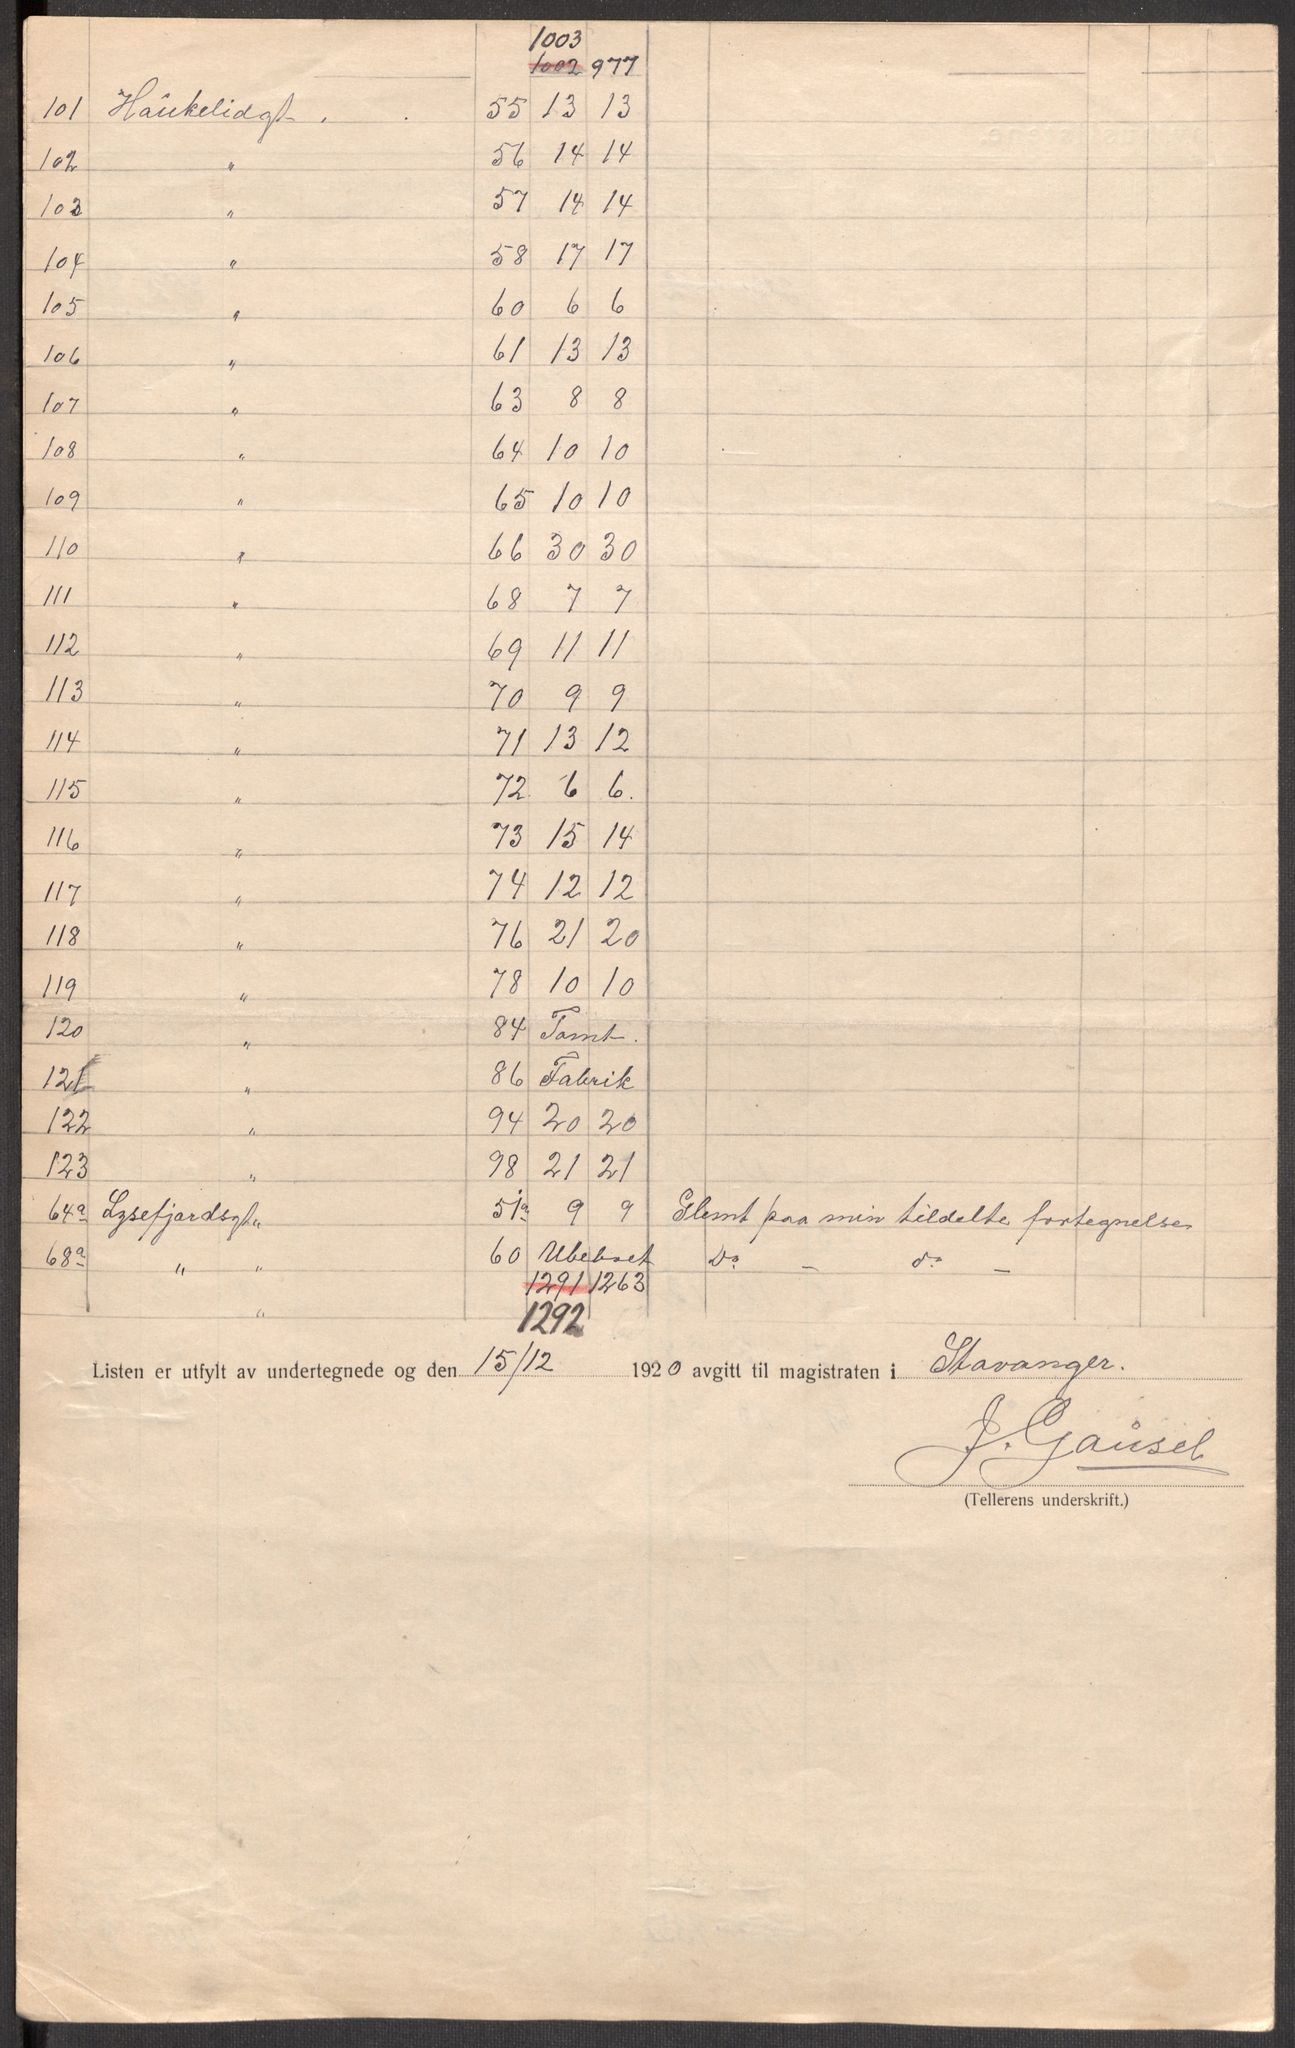 1003
1002 977
101 Haukelidgt. 55 13 13
102 " 56 14 14
103 " 57 14 14
104 " 58 17 17
105 " 60 6 6
106 " 61 13 13
107 " 63 8 8
108 " 64 10 10
109 " 65 10 10
110 " 66 30 30
111 " 68 7 7
112 " 69 11 11
113 " 70 9 9
114 " 71 13 12
115 " 72 6 6.
116 " 73 15 14
117 " 74 12 12
118 " 76 21 20
119 " 78 10 10
120 " 84 Tomt.
121 " 86 Fabrik
122 " 94 20 20
123 " 98 21 21
64a Lysefjordsgt " 51a 9 9 Glemt paa min tildelte fortegnelse
68a " " 60 Ubeboet Do - do -
1291 1263
" 1292
Listen er utfylt av undertegnede og den 15/12 1920 avgitt til magistraten i Stavanger.
J. Gausel
(Tellerens underskrift.)